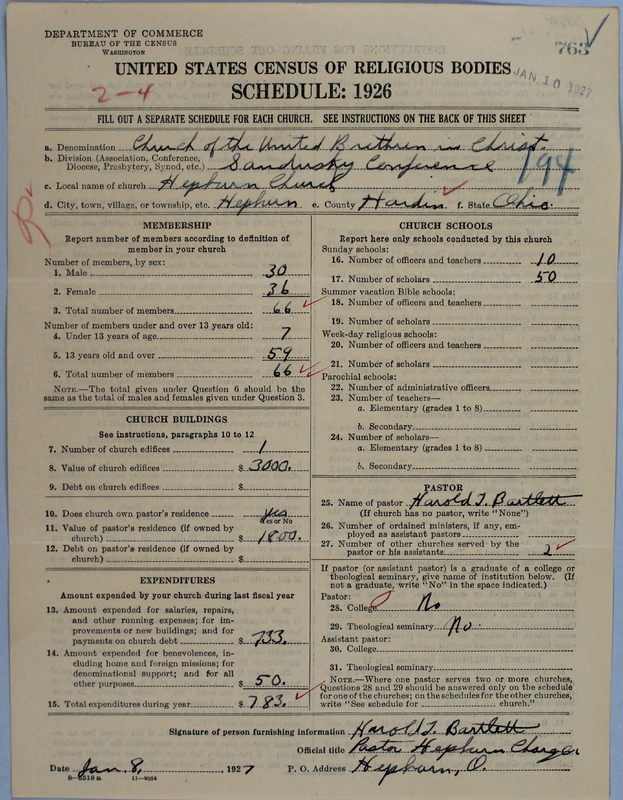 DEPARTMENT OF COMMERCE
BUREAU OF THE CENSUS
WASHINGTON
763
JAN 10 1927
UNITED STATES CENSUS OF RELIGIOUS BODIES
2-4
SCHEDULE: 1926
FILL OUT A SEPARATE SCHEDULE FOR EACH CHURCH. SEE INSTRUCTIONS ON THE BACK OF THIS SHEET
a. Denomination Church of the United Brethren in Christ.
b. Division (Association, Conference, Diocese, Presbytery, Synod, etc.) Sandusky Conference
194
c. Local name of church Hepburn Church
d. City, town, village, or township, etc. Hepburn e. County Hardin f. State Ohio
MEMBERSHIP
Report number of members according to definition of
member in your church
Number of members, by sex:
1. Male 30
2. Female 36
3. Total number of members 66
Number of members under and over 13 years old:
4. Under 13 years of age 7
5. 13 years old and over 59
6. Total number of members 66
NOTE.—The total given under Question 6 should be
same as the total of males and females given under Question 3.
CHURCH BUILDINGS
See instructions, paragraphs 10 to 12
7. Number of church edifices 1
8. Value of church edifices $ 3000.
9. Debt on church edifices $
10. Does church own pastor's residence yes
Yes or No
11. Value of pastor's residence (if owned by
church) $ 1800.
12. Debt on pastor's residence (if owned by
church) $
EXPENDITURES
Amount expended by your church during last fiscal year
13. Amount expended for salaries, repairs,
and other running expenses; for im-
provements or new buildings; and for
payments on church debt $ 733.
14. Amount expended for benevolences, in-
cluding home and foreign missions; for
denominational support; and for all
other purposes $ 50.
15. Total expenditures during year $ 783.
CHURCH SCHOOLS
Report here only schools conducted by this church
Sunday schools:
16. Number of officers and teachers 10
17. Number of scholars 50
Summer vacation Bible schools:
18. Number of officers and teachers
19. Number of scholars
Week-day religious schools:
20. Number of officers and teachers
21. Number of scholars
Parochial schools:
22. Number of administrative officers
23. Number of teachers—
a. Elementary (grades 1 to 8)
b. Secondary
24. Number of scholars—
a. Elementary (grades 1 to 8)
b. Secondary
PASTOR
25. Name of pastor Harold T. Bartlett
(If church has no pastor, write "None")
26. Number of ordained ministers, if any, em-
ployed as assistant pastors
27. Number of other churches served by the
pastor or his assistants 2
If pastor (or assistant pastor) is a graduate of a college or
theological seminary, give name of institution below. (If
not a graduate, write "No" in the space indicated.)
Pastor:
28. College No
29. Theological seminary No.
Assistant pastor:
30. College
31. Theological seminary
NOTE.—Where one pastor serves two or more churches,
Questions 28 and 29 should be answered only on the schedule
for one of the churches; on the schedules for the other churches,
write "See schedule for church."
Signature of person furnishing information Harold T. Bartlett
Official title Pastor Hepburn Charge
Date Jan. 8, 1927 P. O. Address Hepburn, O.
8-5518 a 11-9054